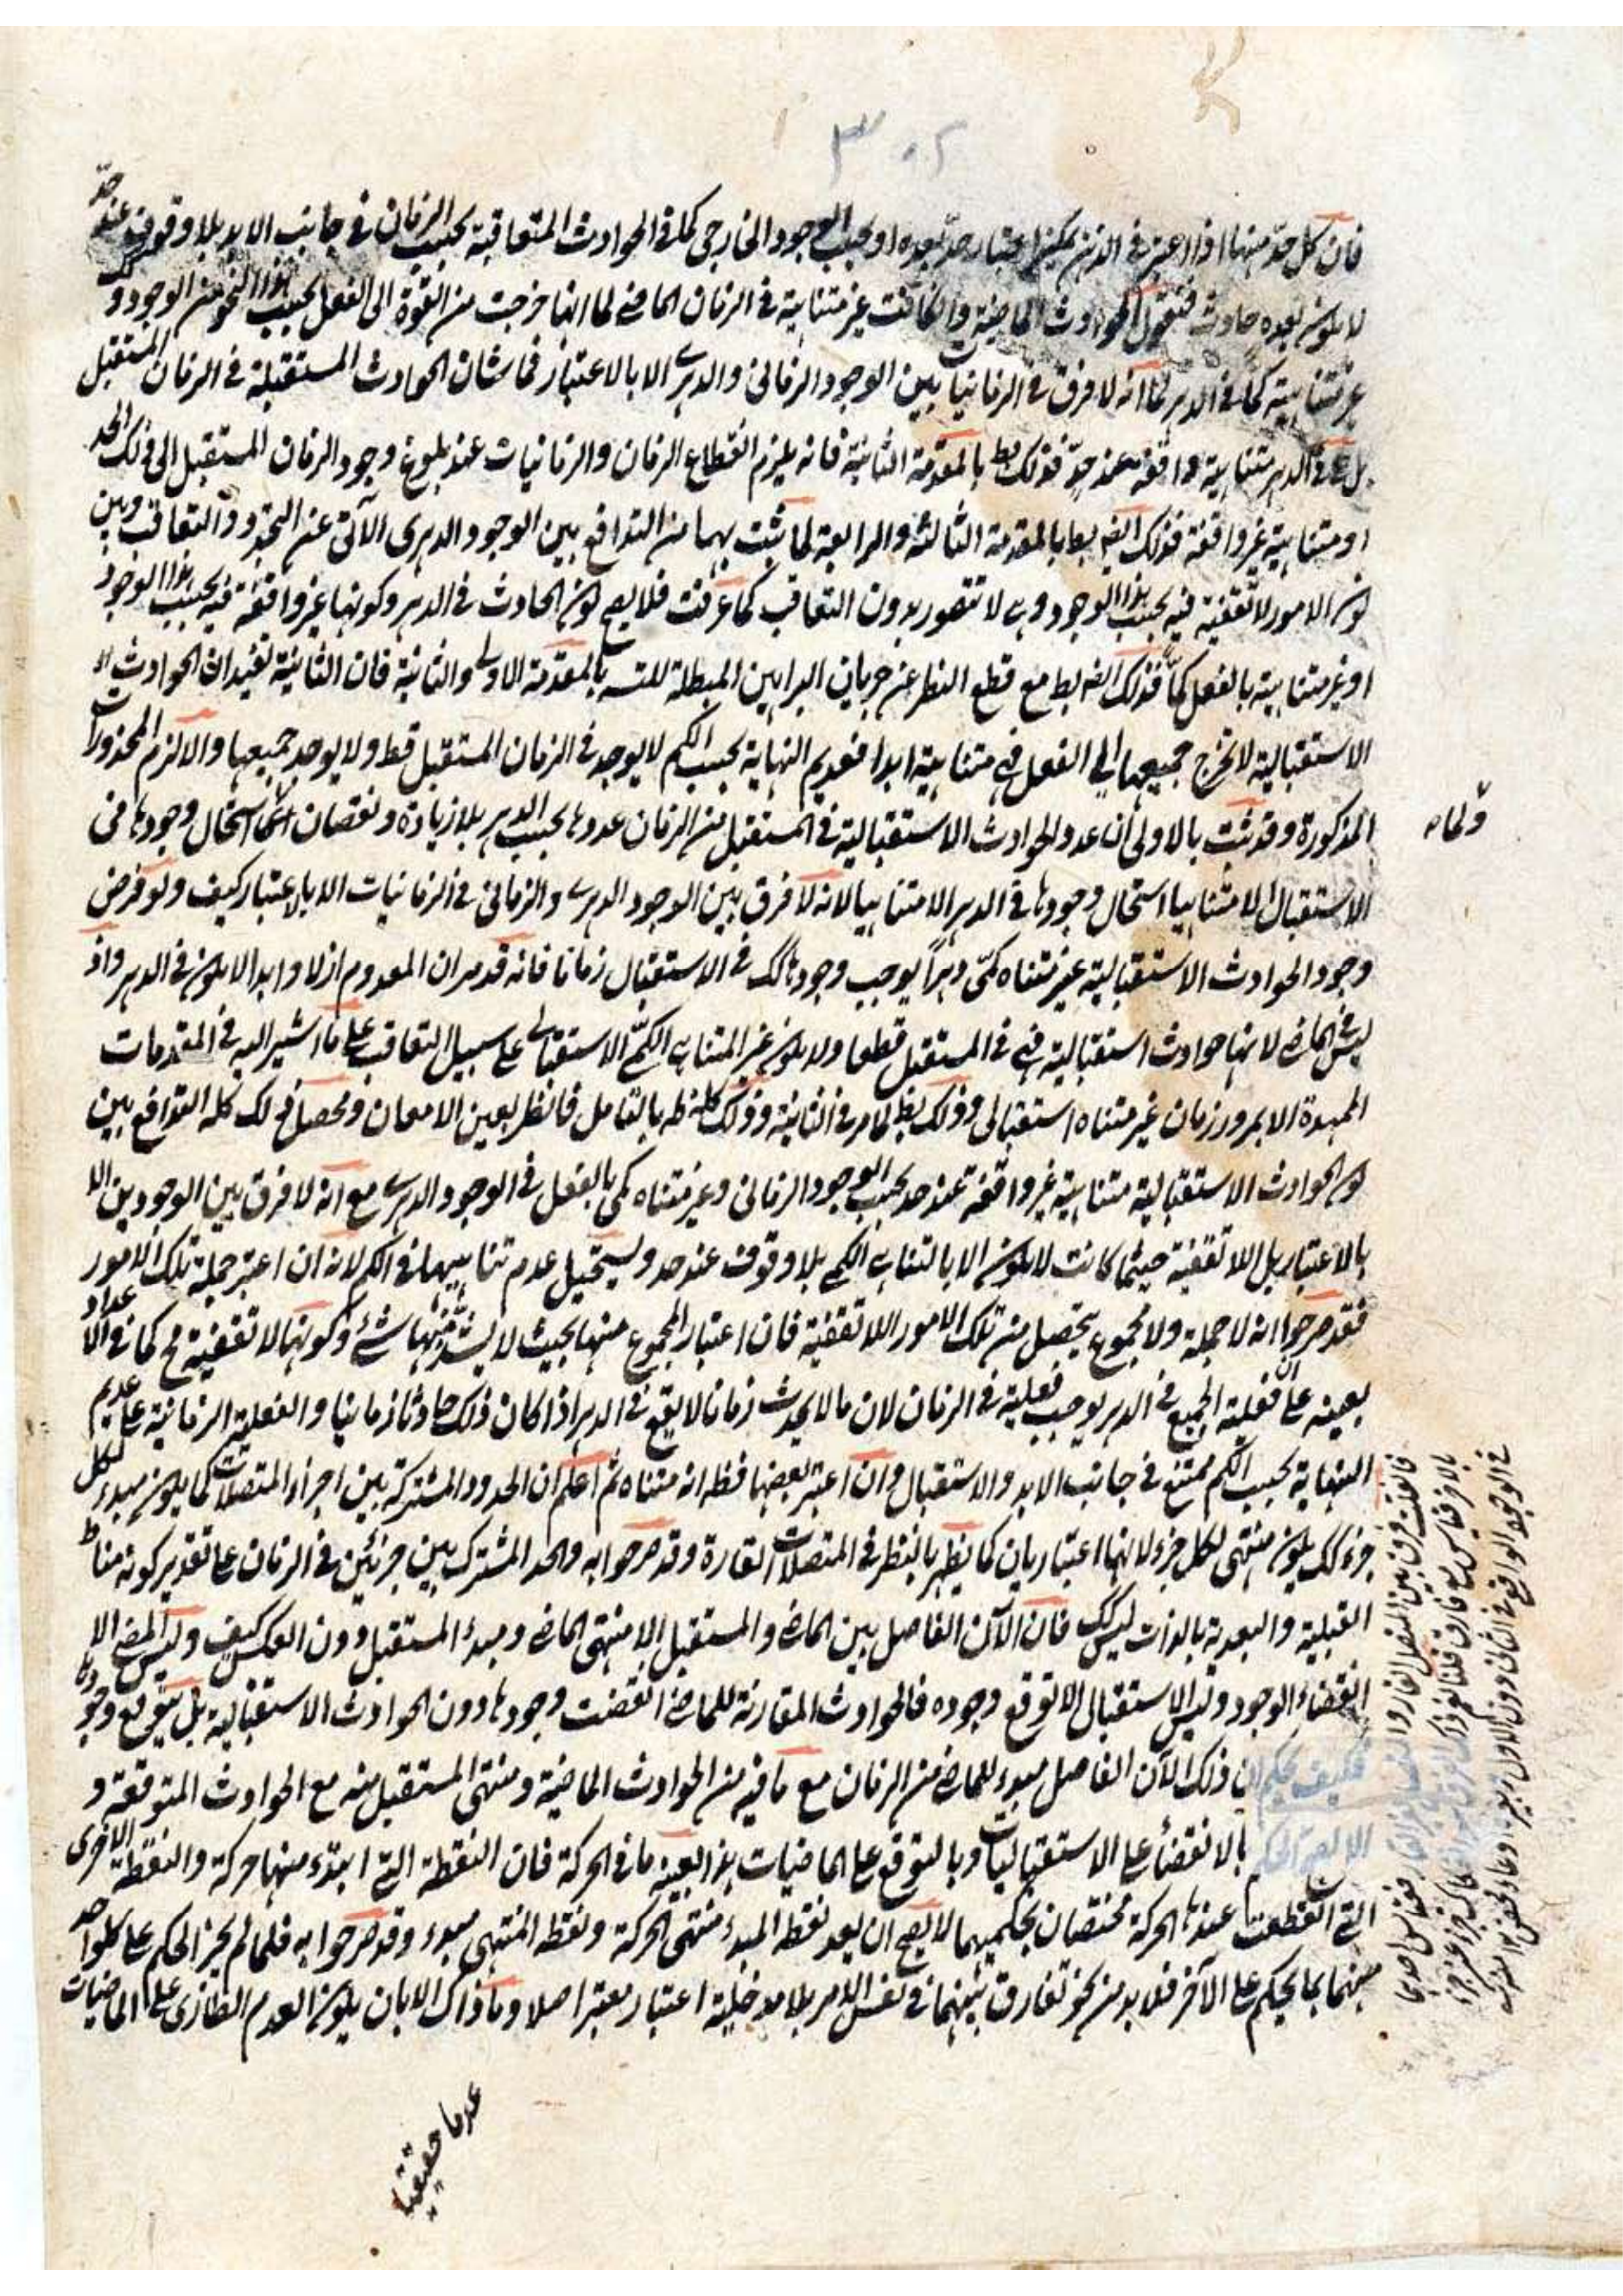 ٣٠٢
فان كل حد منها اذا اعتبر في الذهن يمكن اعتبار حد بعده او بحسب الوجود الخارجي كما في الحوادث المتعاقبة بحسب الزمان في جانب الابد بلا وقوف عند حد
لا يكون بعده حادث فنقول الحوادث الماضية وان كانت غير متناهية في الزمان الماضي لما انها خرجت من القوة الى الفعل بحسب هذا النحو من الوجود و
غير متناهية كما في الدهر لما انه لا فرق في الزمانيات بين الوجود الزماني والدهري الا بالاعتبار فما شان الحوادث المستقبلة في الزمان المستقبل
بل هي في الدهر متناهية واقفة عند حد فذلك بط بالمقدمة الثانية فانه يلزم انقطاع الزمان والزمانيات عند بلوغ وجود الزمان المستقبل الى ذلك الحد
او متناهية غير واقفة فذلك ايضه بالمقدمة الثالثة والرابعة لما ثبت بهما من التدافع بين الوجود الدهري الآبي عن التجدد والتعاقب وبين
كون الامور لا تقفية فيه بحسب هذا الوجود وهي لا تتصور بدون التعاقب كما عرفت فلا يصح كون الحادث في الدهر وكونها غير واقفة فيه بحسب هذا الوجود
او غير متناهية بالفعل كما فذلك ايضه بط مع قطع النظر عن جريان البراهين المبطلة للتسه بالمقدمة الاولى والثانية فان الثانية تفيد ان الحوادث
الاستقبالية لا تخرج جميعها الى الفعل فهي متناهية ابدا فعديم النهاية بحسب الكم لا يوجد في الزمان المستقبل قط ولا يوجد جميعها والا لزم المحذورات
المذكورة وقد ثبت بالاولى ان عدد الحوادث الاستقبالية في المستقبل من الزمان عددها بحسب الدهر بلا زيادة ونقصان فكما استحال وجودها في
الاستقبال لا متناهيا استحال وجودها في الدهر لا متناهيا لانه لا فرق بين الوجود الدهري والزماني في الزمانيات الا بالاعتبار كيف ولو فرض
وجود الحوادث الاستقبالية غير متناه كمي دهرا يوجب وجودها كك في الاستقبال زمانا فانه قد مر ان المعدوم ازلا وابدا لا يكون في الدهر واذ
ليس في الماضي لانها حوادث استقبالية فهي في المستقبل قطعا ولا يكون غير المتناهي الكمي الاستقبالي على سبيل التعاقب على ما اشير اليه في المقدمات
الممهدة الا بمرور زمان غير متناه استقبالي وذلك بط لما مر في الثانية وذلك كله ظه بالتامل فانظر بعين الامعان ومحصل ذلك كله التدافع بين
كون الحوادث الاستقبالية متناهية غير واقفة عند حد بحسب الوجود الزماني وغير متناه كمي بالفعل في الوجود الدهري مع انه لا فرق بين الوجودين الا
بالاعتبار بل اللا تقفية حيثما كانت لا يكون الا بالتناهي الكمي بلا وقوف عند حد ويستحيل عدم تناهيها في الكم لانه ان اعتبر جملة تلك الامور
فقد صرحوا انه لا جملة ولا مجموع يتحصل من تلك الامور اللا تقفية فان اعتبار المجموع منها بحيث لا يشذ منها شئ وكونها لا تقفية مح كما في الاعداد
بعينه على ان فعلية الجميع في الدهر يوجب فعلية في الزمان لان ما لا يحدث زمانا لا يقع في الدهر اذا كان ذلك حادثا زمانيا والفعلية الزمانية على عديم
النهاية بحسب الكم ممتنع في جانب الابد والاستقبال وان اعتبر بعضها فظه انه متناه ثم اعلم ان الحدود المشتركة بين اجزاء المتصلات كما يكون مبدء لكل
جزء كك يكون منتهى لكل جزء لانهما اعتباريان كما يظهر بالنظر في المتصلات القارة وقد صرحوا به والحد المشترك بين جزئين في الزمان على تقدير كونه مناط
القبلية والبعدية بالذات ليس كك فان الآن الفاصل بين الماضي والمستقبل الا منتهى الماضي ومبدء المستقبل دون العكس كيف وليس المضي الا
انقضاء الوجود وليس الاستقبال الا توقع وجوده فالحوادث المقارنة للماضي انقضت وجودها دون الحوادث الاستقبالية بل يتوقع وجودها
فكيف يحكم بان ذلك الآن الفاصل مبدء للماضي من الزمان مع ما فيه من الحوادث الماضية ومنتهى المستقبل منه مع الحوادث المتوقعة و
الا لصح الحكم بالانقضاء على الاستقباليات وبالتوقع على الماضيات هذا بعينه ما في الحركة فان النقطة التي ابتدء منها حركة والنقطة الاخرى
التي انقطعت عندها الحركة مختصتان بحكميهما لا يصح ان يعد نقطة المبدء منتهى الحركة ونقطة المنتهى مبدء وقد صرحوا به فلما لم يجز الحكم على كل واحد
منهما بما يحكم على الآخر فلا بد من نحو تفارق بينهما في نفس الامر بلا مدخلية اعتبار معتبر اصلا وما ذاك الا بان يكون العدم الطارئ على الماضيات
عدما حقيقيا
فان قلت فرق بين المتصل القار والمتصل غير القار فقياس احدهما
بالاخر قياس مع فارق قلنا
في الوجود الواقع في الثاني دون الاول